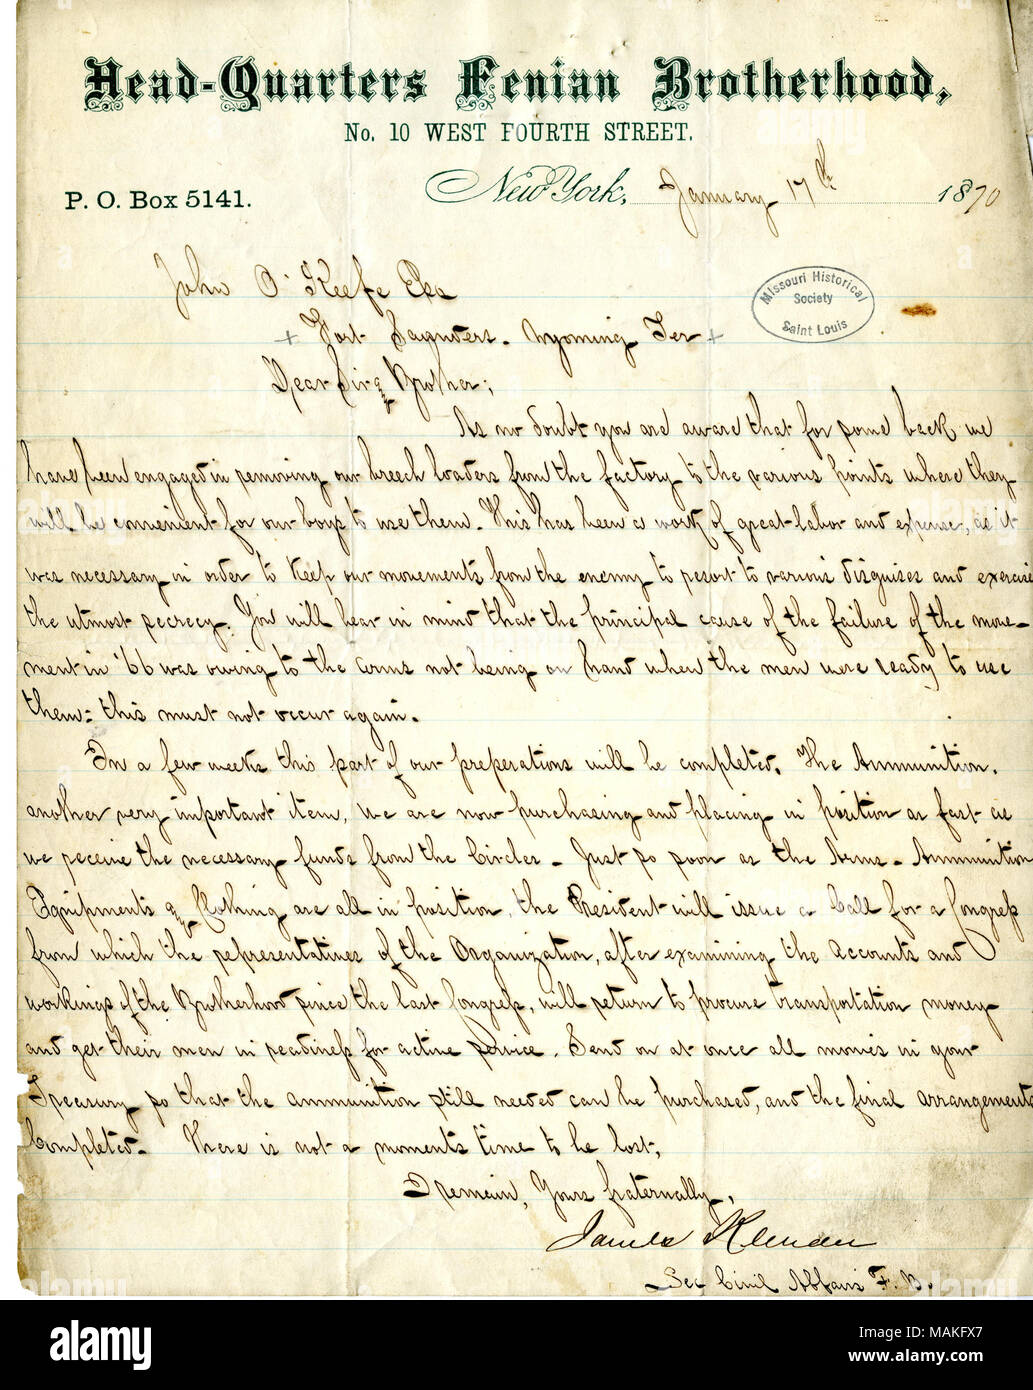 Head-Quarters Fenian Brotherhood,
No. 10 WEST FOURTH STREET.
P. O. Box 5141.
New York, January 17th 1870
John O'Keefe Esq
Missouri Historical
Society
Saint Louis
+ Fort Saunders. Wyoming Ter +
Dear Sir & Brother;
As no doubt you are aware that for some back we
have been engaged in removing our breech loaders from the factory to the various points where they
will be convenient for our boys to use them. This has been a work of great labor and expense, as it
was necessary in order to keep our movements from the enemy to resort to various disguises and exercise
the utmost secrecy. You will bear in mind that the principal cause of the failure of the move-
ment in '66 was owing to the arms not being on hand when the men were ready to use
them: this must not occur again.
In a few weeks this part of our preperations will be completed. The Ammunition,
another very important item, we are now purchasing and placing in position as fast as
we receive the necessary funds from the Circles - Just so soon as the Arms - Ammunition
Equipments & Clothing are all in position, the President will issue a Call for a Congress
from which the representatives of the Organization, after examining the accounts and
workings of the Brotherhood since the last Congress, will return to procure transportation money
and get their men in readiness for active service. Send on at once all monies in your
Treasury so that the ammunition still needed can be purchased, and the final arrangements
Completed. There is not a moments time to be lost.
I remain, Yours fraternally,
James
Sec Civil Affairs F. B.
alamy
Image ID: MAKFX7
www.alamy.com